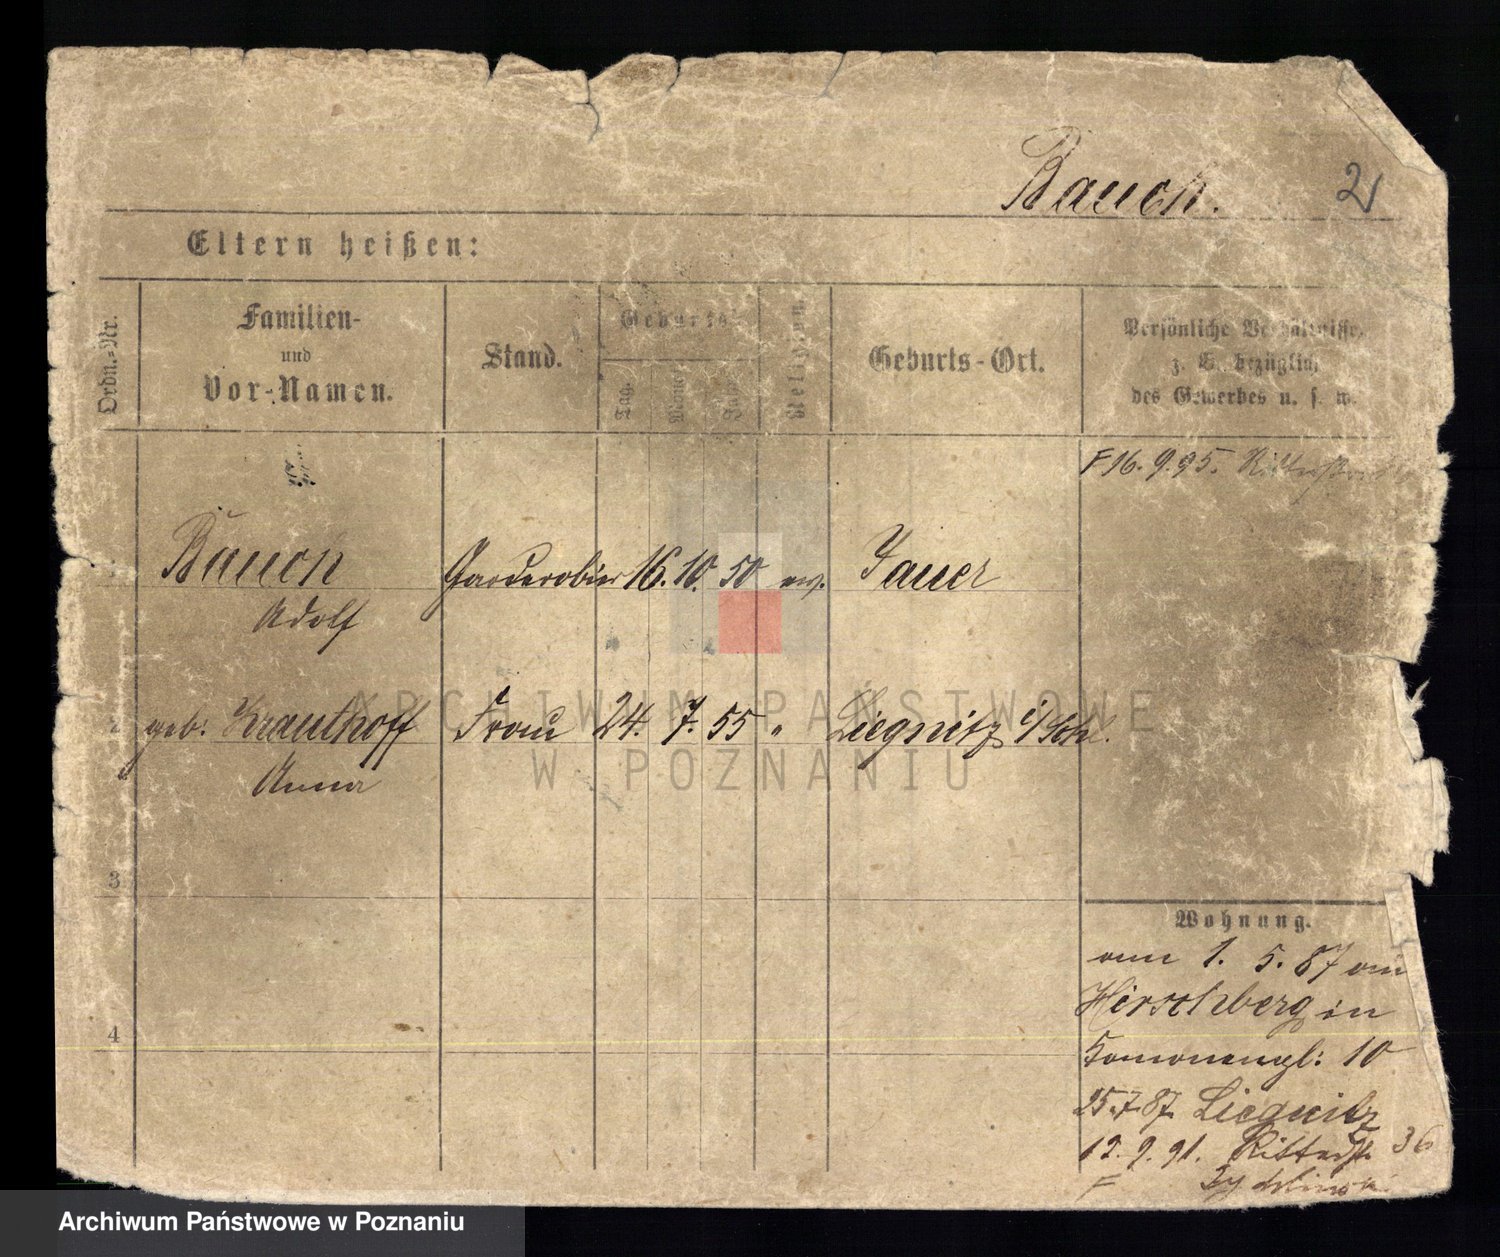 Bauch. 21
Eltern heißen:
Ordn.-Nr.
Familien-
und
Vor-Namen.
Stand.
Geburts-
Tag.
Monat
Jahr
Religion.
Geburts-Ort.
Persönliche Verhältnisse,
z. B. bezüglich
des Gewerbes u. s. w.
F 16. 9. 95.
Bauch Garderobier 16. 10. 50 ev. Jauer
Adolf
geb. Krauthoff Frau 24. 7. 55 " Liegnitz i/Schl.
Anna
3
Wohnung.
1. 5. 87
Hirschberg in
4
10
25. 7. 87 Liegnitz
12. 9. 91. Ritterstr 36
F
ARCHIWUM PAŃSTWOWE
W POZNANIU
Archiwum Państwowe w Poznaniu